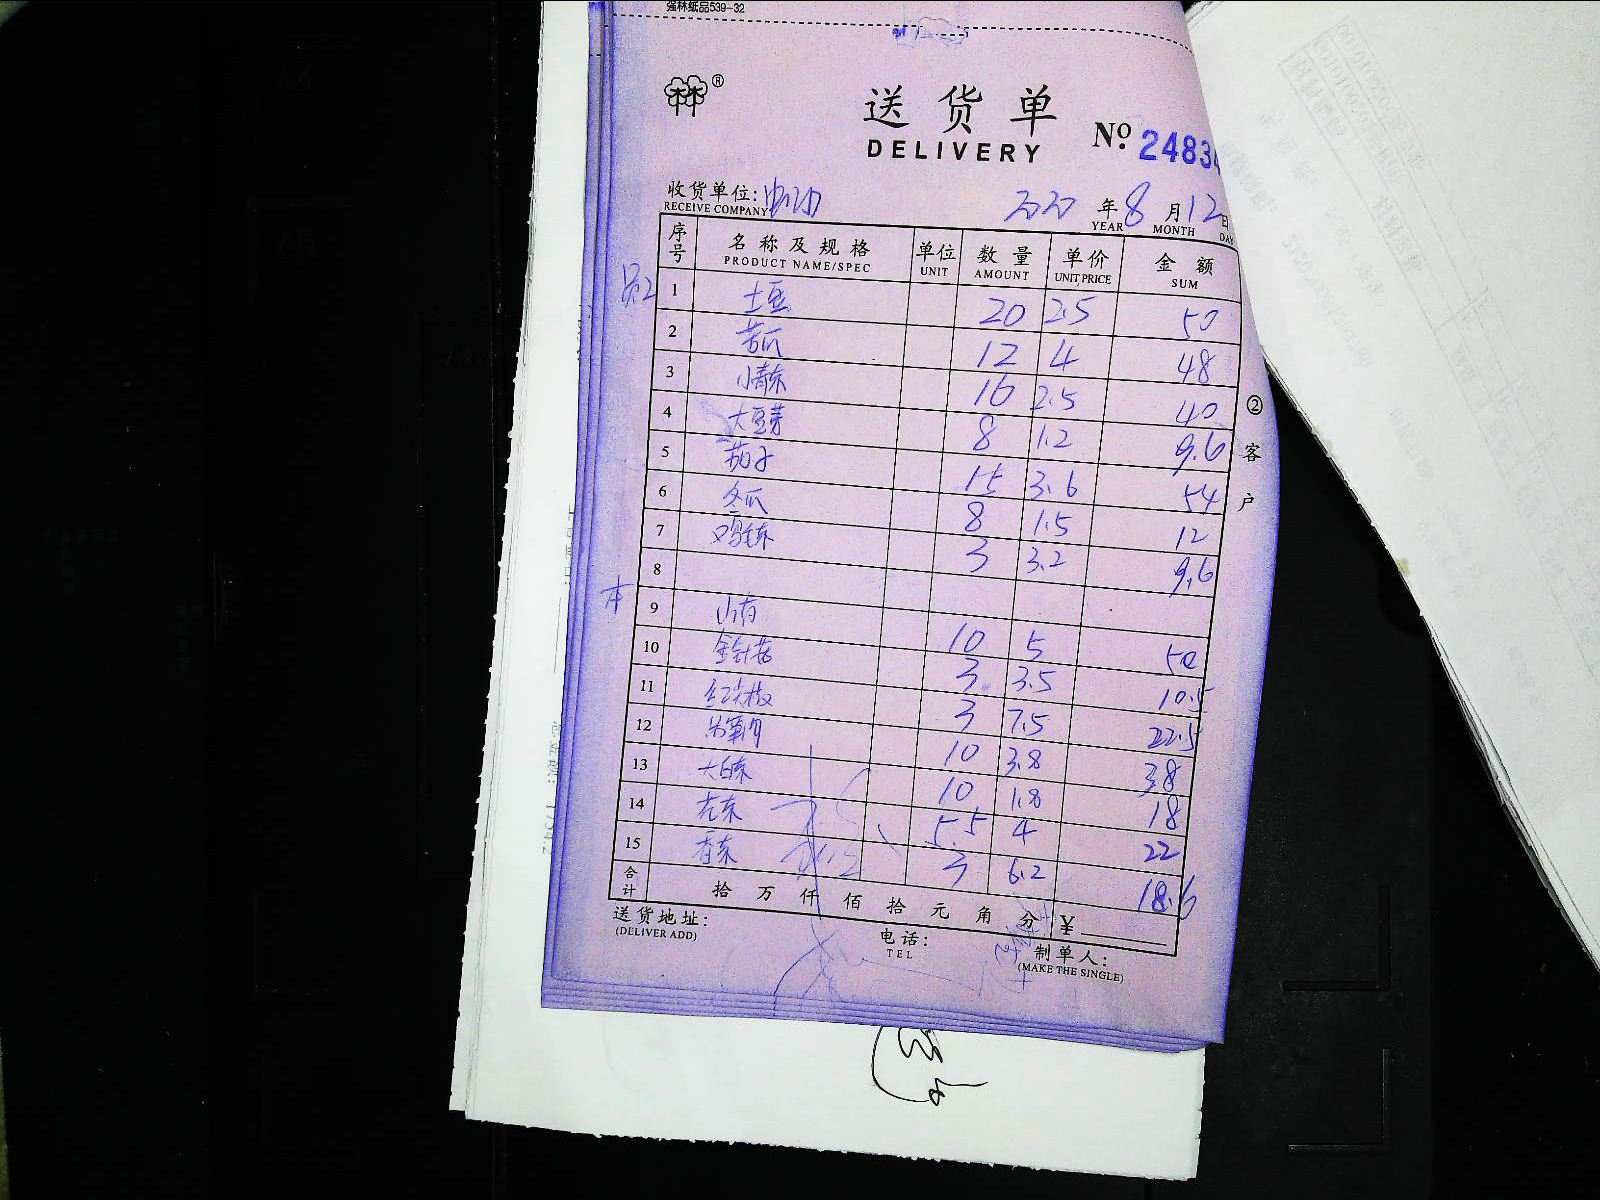 强林纸品539-32
林®
送货单
DELIVERY
No. 2483
收货单位: 2020 年 8 月 12 日
RECEIVE COMPANY YEAR MONTH DAY
序号 名称及规格 单位 数量 单价 金额
PRODUCT NAME/SPEC UNIT AMOUNT UNIT PRICE SUM
1 土豆 20 2.5 50
2 苦瓜 12 4 48
3 小青菜 16 2.5 40
4 大豆芽 8 1.2 9.6
5 茄子 15 3.6 54
6 冬瓜 8 1.5 12
7 鸡毛菜 3 3.2 9.6
8
9 山药 10 5 50
10 金针菇 3 3.5 10.5
11 红尖椒 3 7.5 22.5
12 10 3.8 38
13 大白菜 10 1.8 18
14 5.5 4 22
15 香菜 3 6.2 18.6
合计 拾万仟佰拾元角分 ¥
送货地址: 电话: 制单人:
(DELIVER ADD) TEL (MAKE THE SINGLE)
②客户